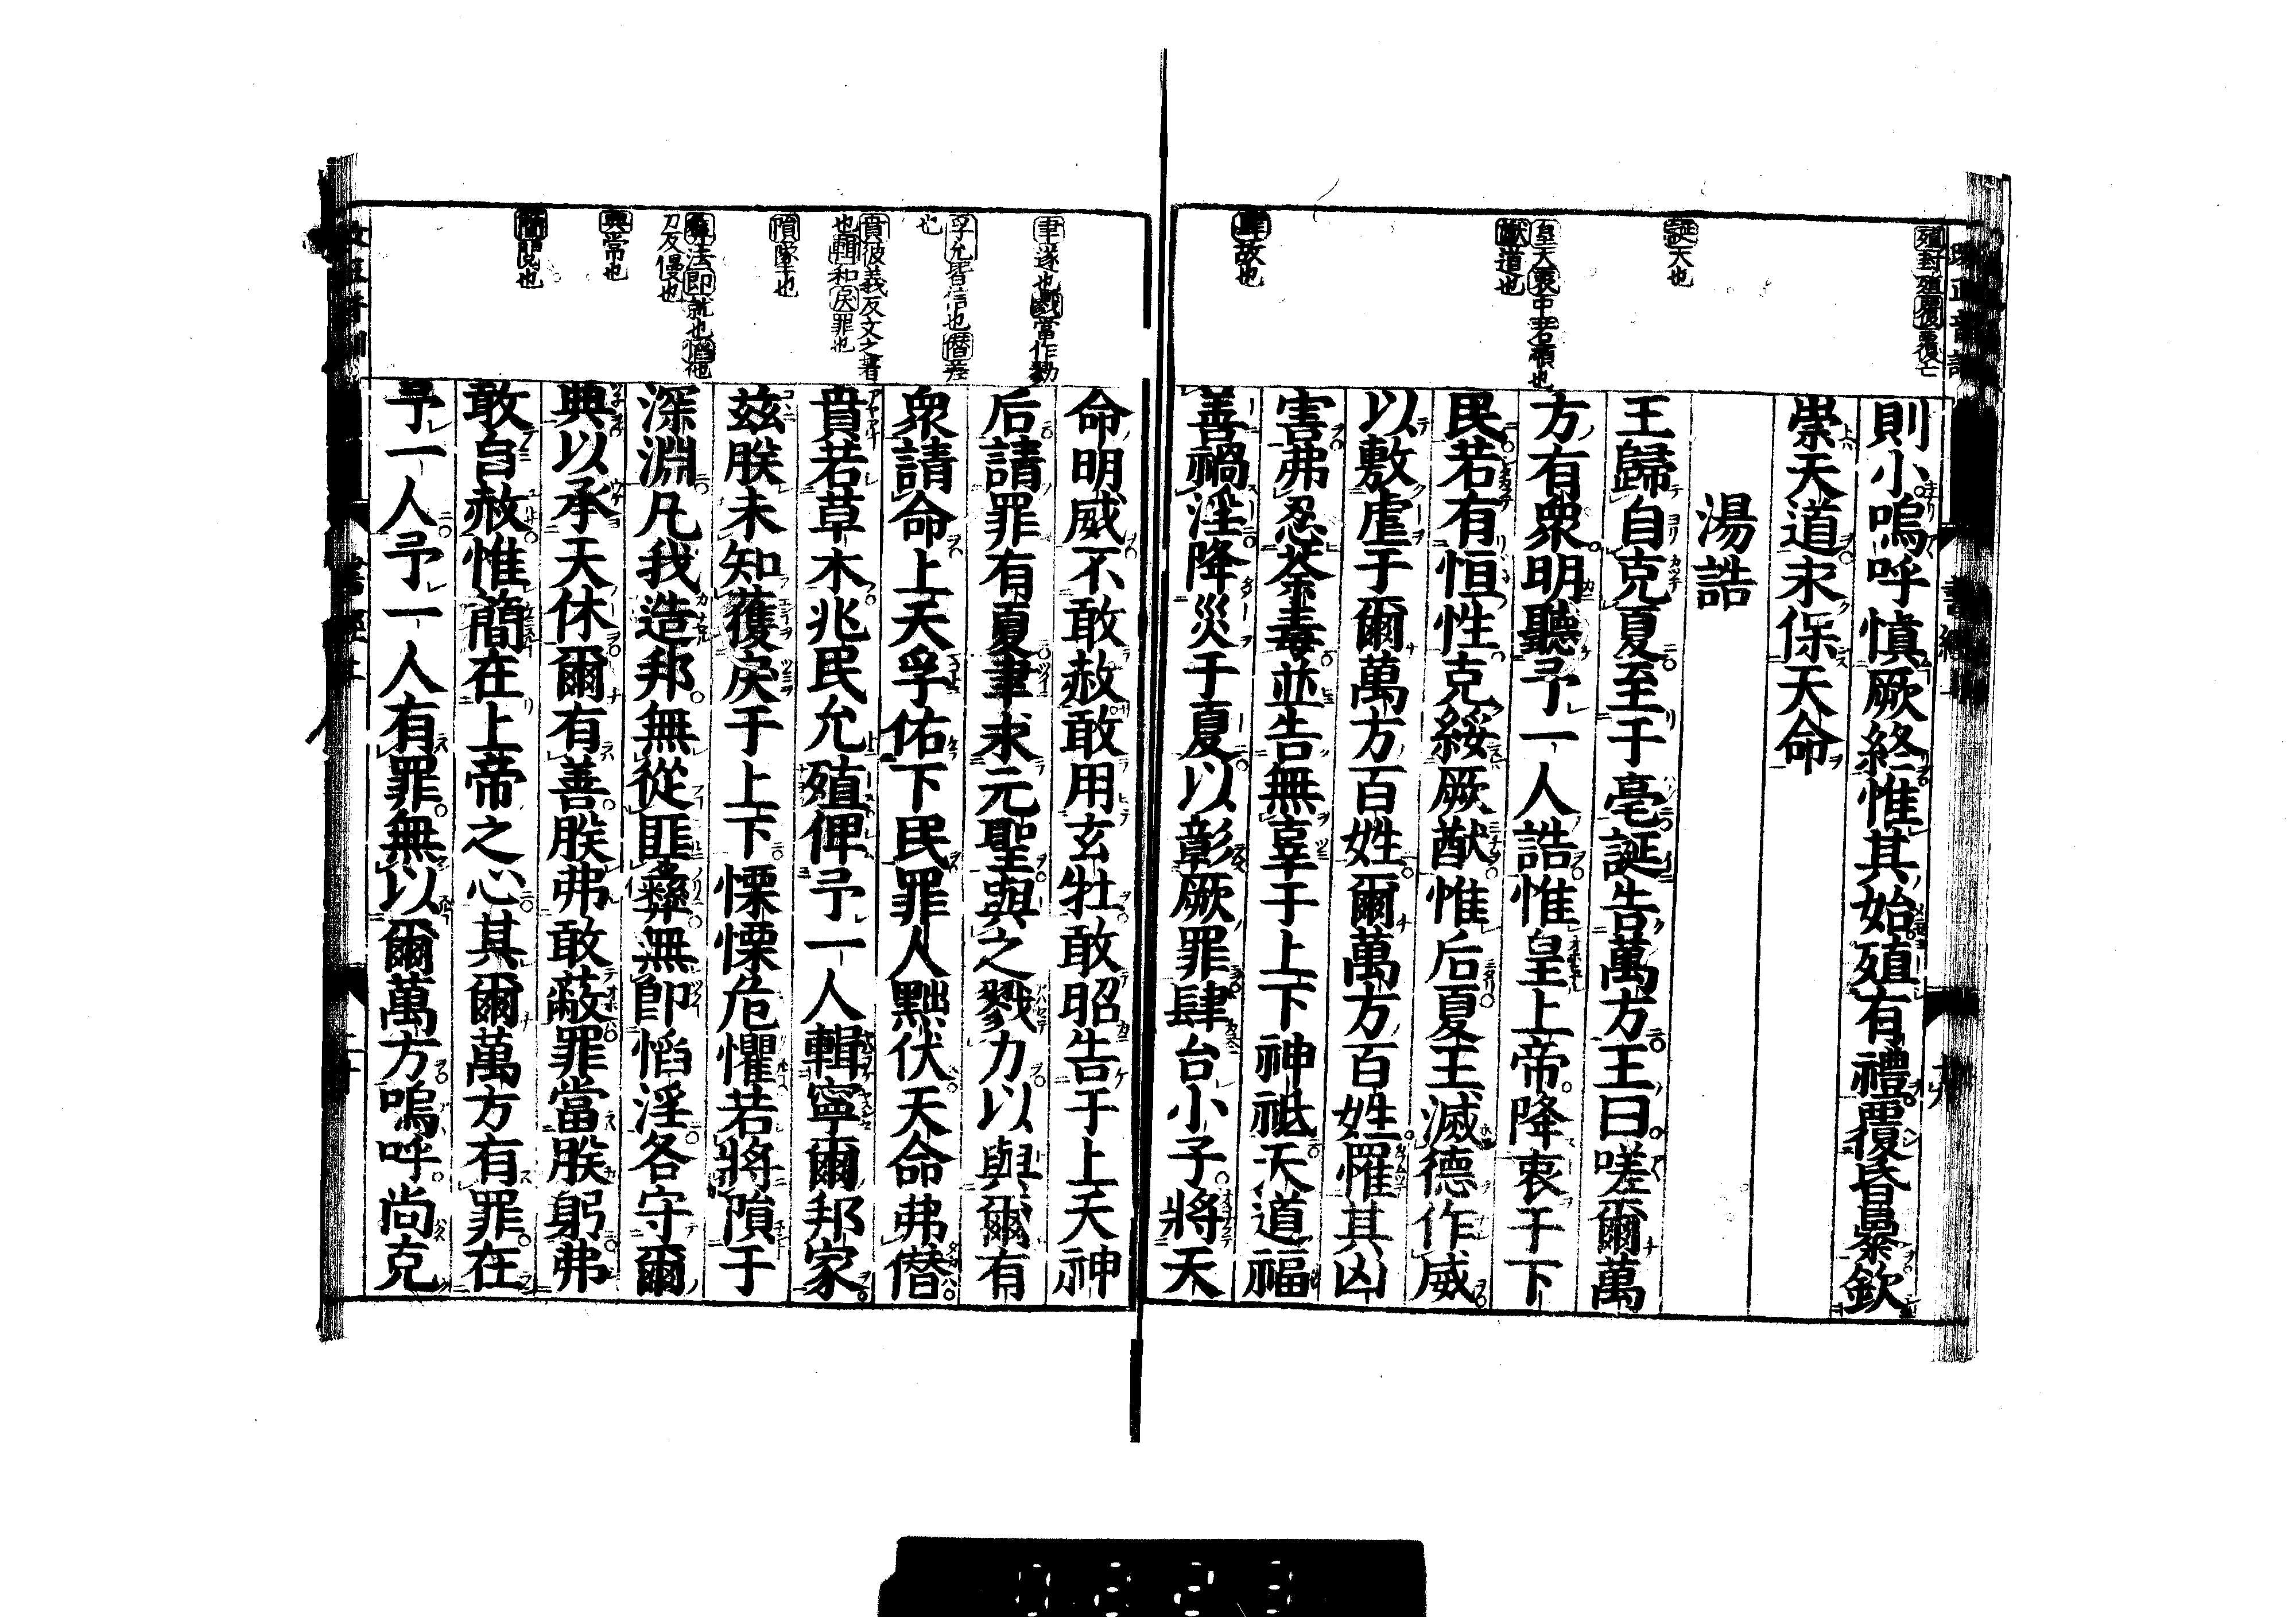 殖封殖覆亡
誕大也
皇大衷中若順也
猷道也
肆故也
則小嗚呼愼厥終惟其始殖有禮覆昏暴欽
崇天道永保天命
湯誥
王歸自克夏至于亳誕告萬方王曰嗟爾萬
方有衆明聽予一人誥惟皇上帝降衷于下
民若有恒性克綏厥猷惟后夏王滅德作威
以敷虐于爾萬方百姓爾萬方百姓罹其凶
害弗忍荼毒並告無辜于上下神祗天道福
善禍淫降災于夏以彰厥罪肆台小子將天
聿遂也戮當作勠
孚允皆信也僭差
也
賁彼義反文之著
也輯和戾罪也
隕墜也
彝法即就也慆他
刀反慢也
典常也
簡閱也
命明威不敢赦敢用玄牡敢昭告于上天神
后請罪有夏聿求元聖與之戮力以與爾有
衆請命上天孚佑下民罪人黜伏天命弗僭
賁若草木兆民允殖俾予一人輯寧爾邦家
茲朕未知獲戾于上下慄慄危懼若將隕于
深淵凡我造邦無從匪彝無即慆淫各守爾
典以承天休爾有善朕弗敢蔽罪當朕躬弗
敢自赦惟簡在上帝之心其爾萬方有罪在
予一人予一人有罪無以爾萬方嗚呼尚克